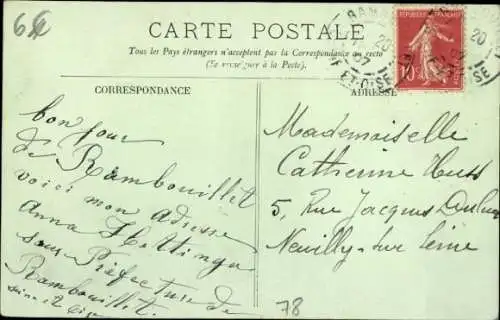 6€
CARTE POSTALE
Tous les Pays étrangers n'acceptent pas la Correspondance au recto
(Se renseigner à la Poste).
CORRESPONDANCE
ADRESSE
RÉPUBLIQUE FRANÇAISE
10
ET-OISE
bonjour
de Rambouillet
voici mon adresse
Anna
sous-Préfecture de
Rambouillet.
Seine et Oise
Mademoiselle
Catherine
5, Rue Jacques Dulud
Neuilly-sur Seine
78